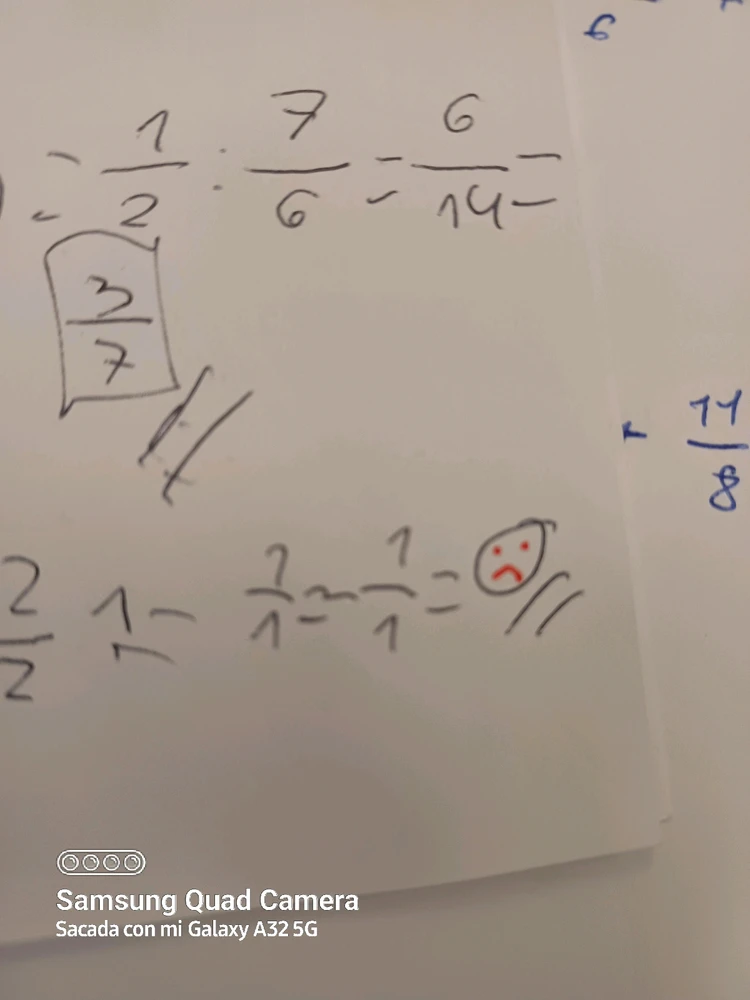 6
= 1/2 : 7/6 = 6/14 =
3/7
11/8
2/2 1 = 1/1 = 1/1 =
Samsung Quad Camera
Sacada con mi Galaxy A32 5G